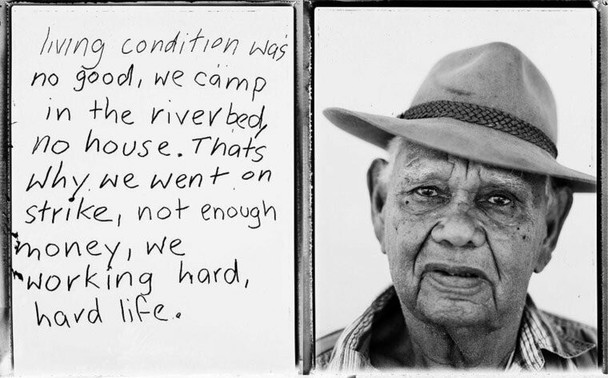 living condition was
no good, we camp
in the riverbed,
no house. Thats
why we went on
strike, not enough
money, we
working hard,
hard life.